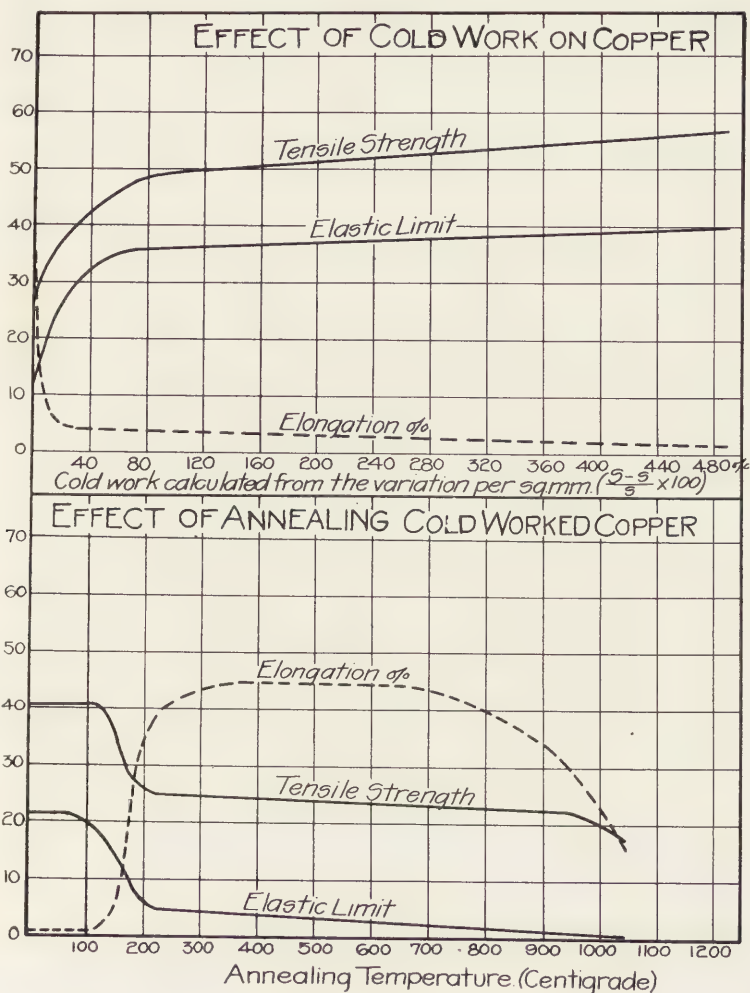 EFFECT OF COLD WORK ON COPPER
70
60
50
40
30
20
10
0
Tensile Strength
Elastic Limit
Elongation %
40 80 120 160 200 240 280 320 360 400 440 480%
Cold work calculated from the variation per sq.mm. (S-s/s ×100)
EFFECT OF ANNEALING COLD WORKED COPPER
70
60
50
40
30
20
10
0
Elongation %
Tensile Strength
Elastic Limit
100 200 300 400 500 600 700 800 900 1000 1100 1200
Annealing Temperature. (Centigrade)